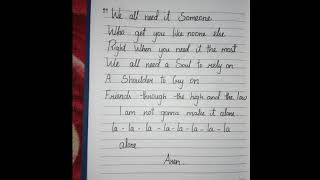 " We all need it Someone
Who get you like noone else
Right When you need it the most
We all need a Soul to rely on
A Shoulder to Cry on
Friends through the high and the law
I am not gonna make it alone
la - la - la - la - la - la - la - la
alone